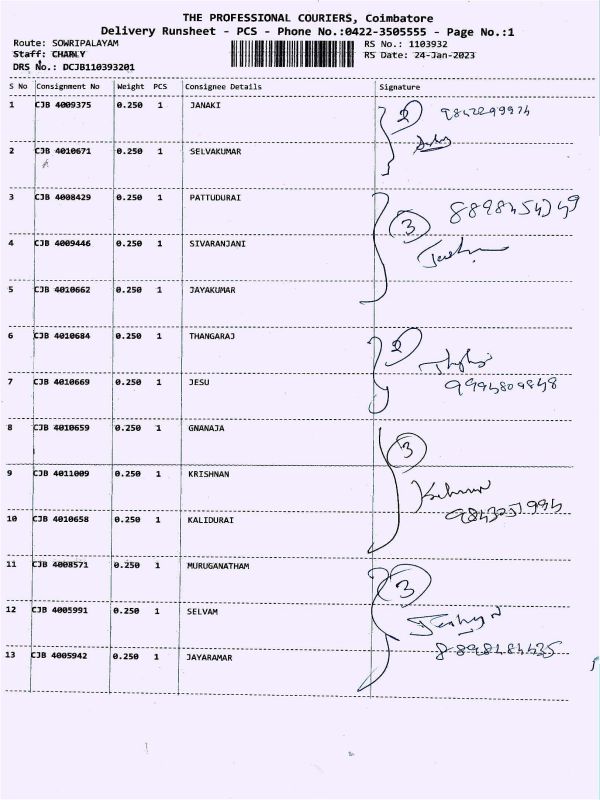 THE PROFESSIONAL COURIERS, Coimbatore
Delivery Runsheet - PCS - Phone No.:0422-3505555 - Page No.:1
Route: SOWRIPALAYAM RS No.: 1103932
Staff: CHARLY RS Date: 24-Jan-2023
DRS No.: DCJB110393201
S No Consignment No Weight PCS Consignee Details Signature
1 CJB 4009375 0.250 1 JANAKI 2
2 CJB 4010671 0.250 1 SELVAKUMAR
3 CJB 4008429 0.250 1 PATTUDURAI 3
4 CJB 4009446 0.250 1 SIVARANJANI
5 CJB 4010662 0.250 1 JAYAKUMAR
6 CJB 4010684 0.250 1 THANGARAJ 2
7 CJB 4010669 0.250 1 JESU
8 CJB 4010659 0.250 1 GNANAJA 3
9 CJB 4011009 0.250 1 KRISHNAN
10 CJB 4010658 0.250 1 KALIDURAI
11 CJB 4008571 0.250 1 MURUGANATHAM 3
12 CJB 4005991 0.250 1 SELVAM
13 CJB 4005942 0.250 1 JAYARAMAR